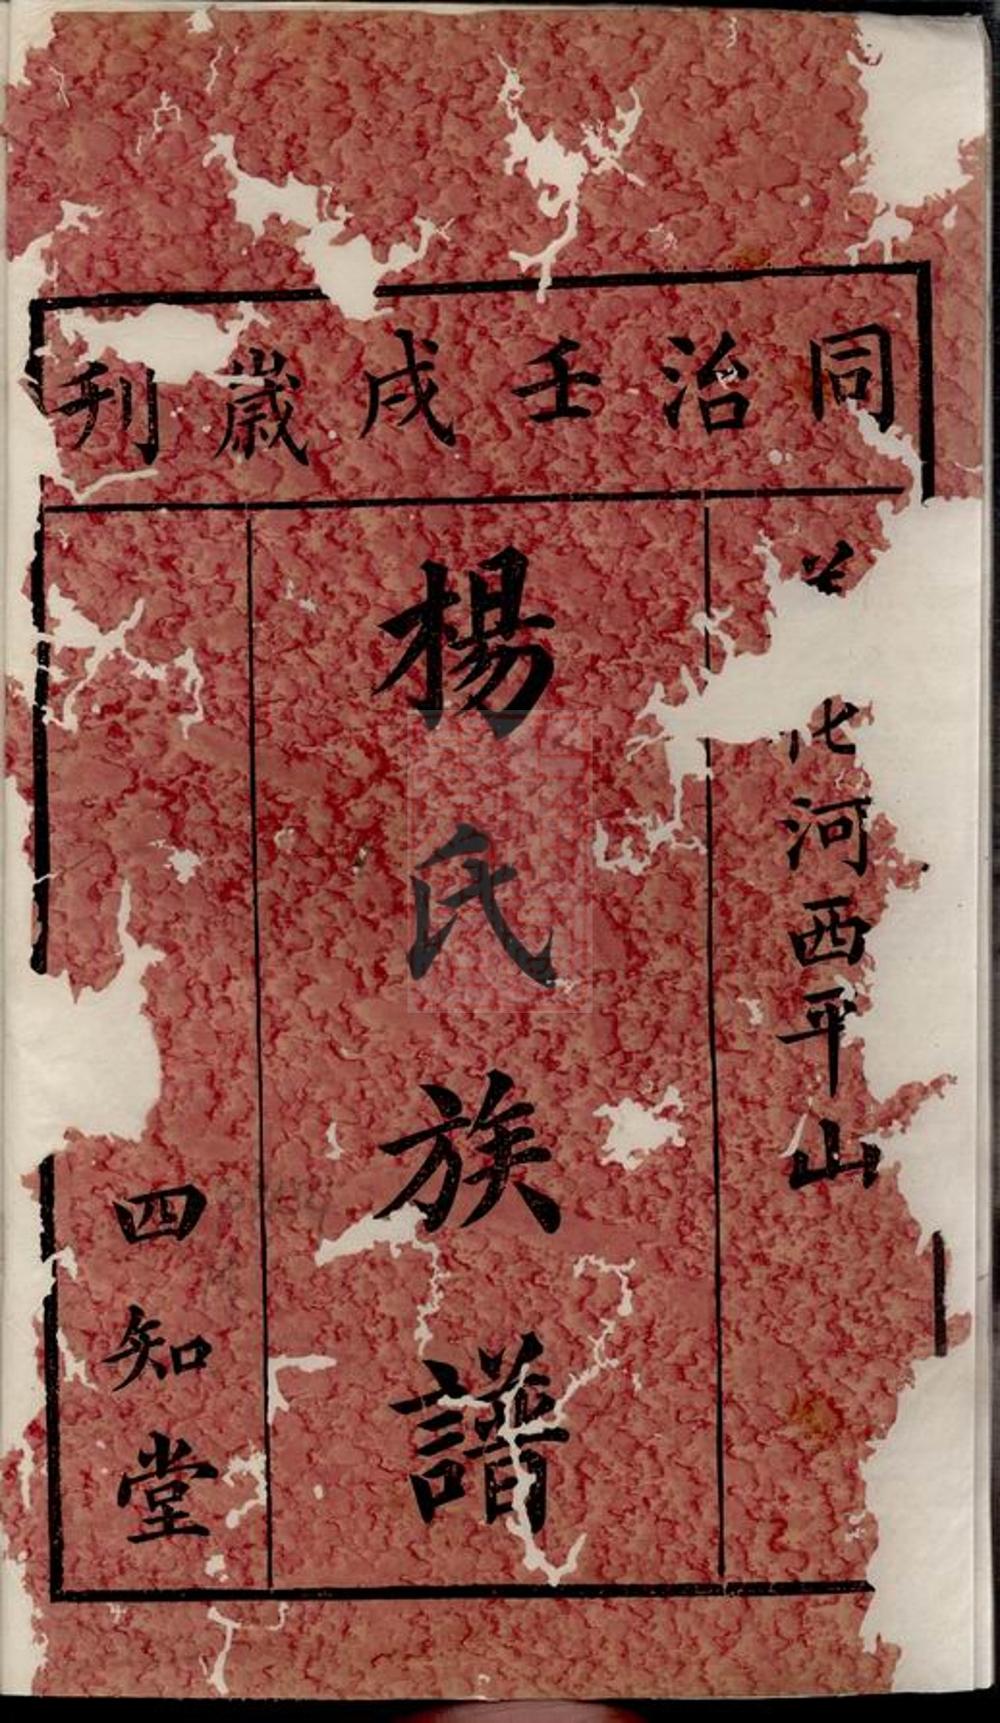 同治壬戌歲刊
河西平山
楊氏族譜
四知堂